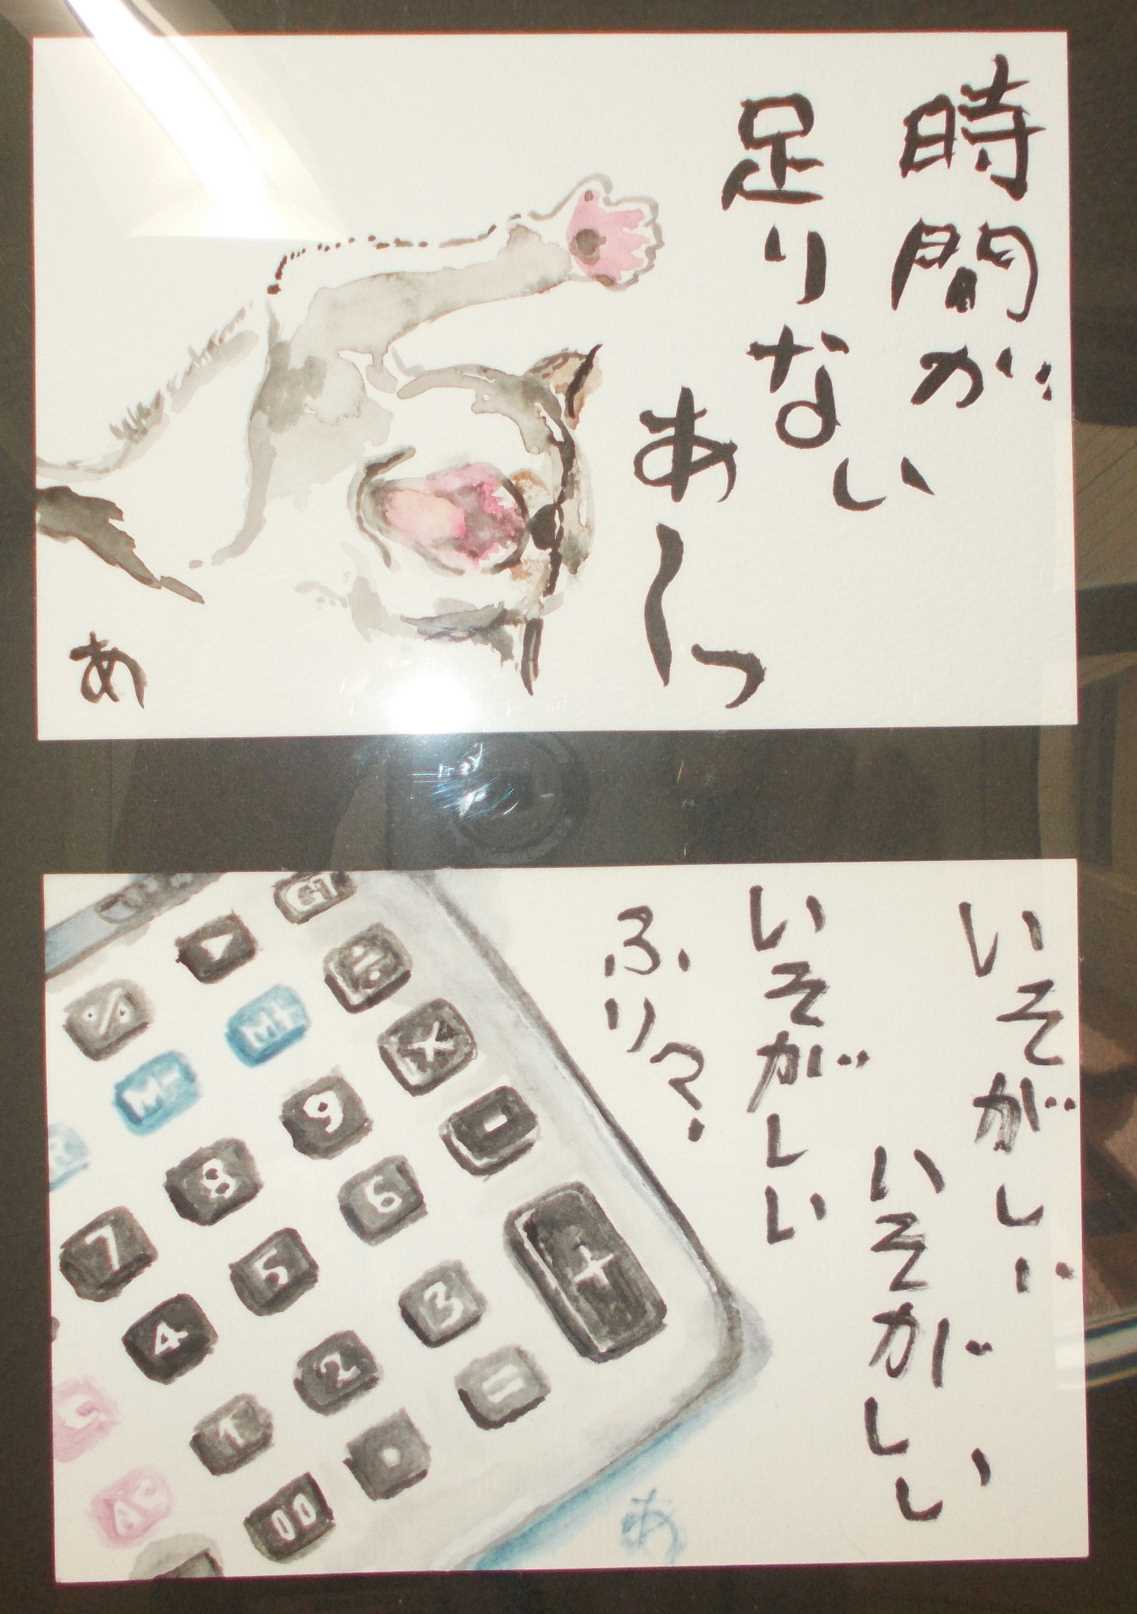 時間が
足りない
あーっ
あ
いそがしい
いそがしい
いそがしい
ふり?
GT
▶
÷
%
M+
×
M-
9
-
8
6
7
5
+
4
3
2
=
1
.
00
あ